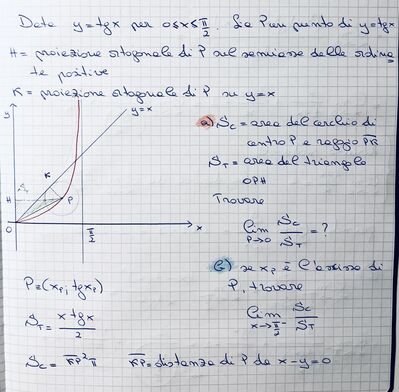 Data y=tgx per 0≤x≤π/2. Sia P un punto di y=tgx
H= proiezione ortogonale di P sul semiasse delle ordina
te positive
K= proiezione ortogonale di P su y=x
y
y=x
K
S_T
H
P
O
π/2
x
a) S_C = area del cerchio di
centro P e raggio PK
S_T = area del triangolo
OPH
Trovare
lim P→0 S_C/S_T = ?
b) se x_P è l'ascissa di
P, trovare
lim x→π/2⁻ S_C/S_T
P≡(x_P; tgx_P)
S_T = x tgx/2
S_C = KP²π KP = distanza di P da x-y=0